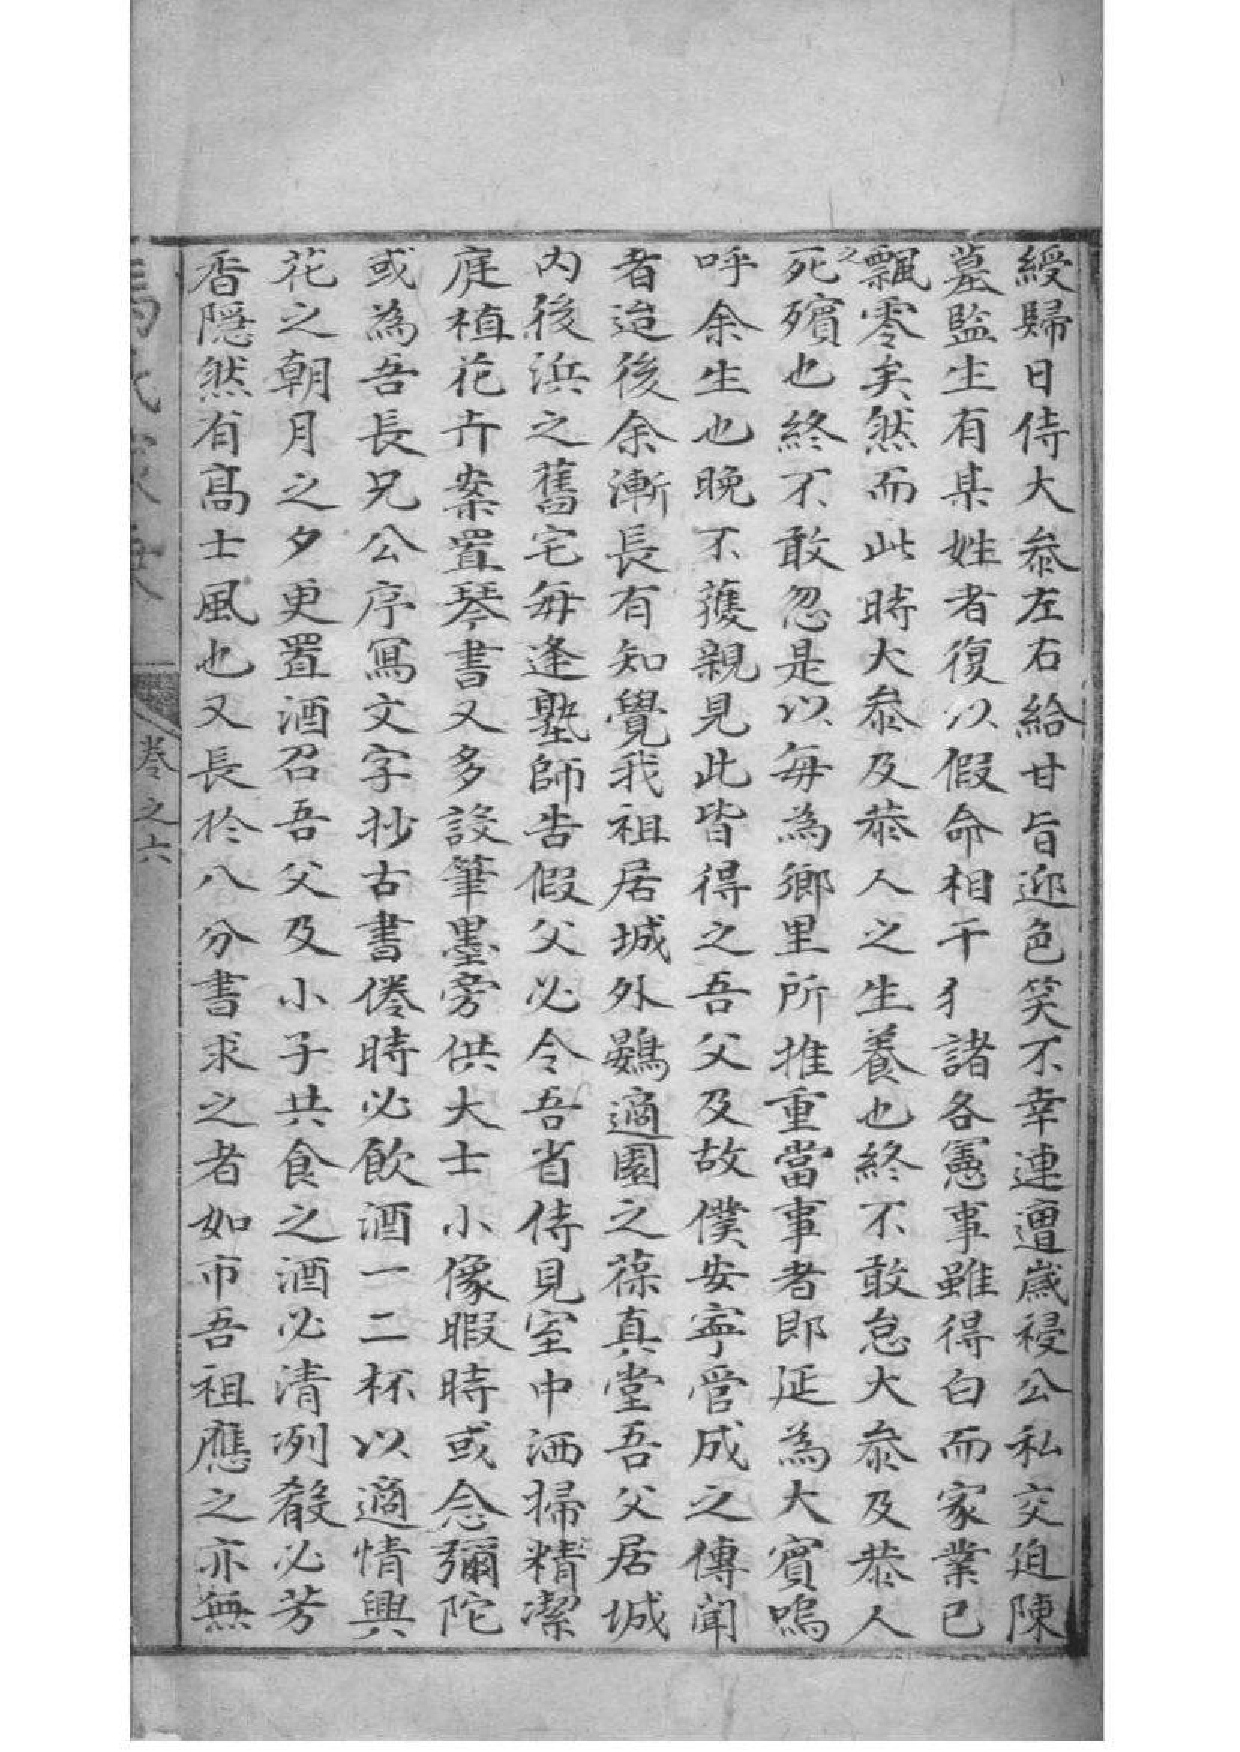 綬歸日侍大叅左右給甘旨迎色笑不幸連遭嵗祲公私交迫陳
墓監生有某姓者復以假命相干犭諸各憲事雖得白而家業已
飄零矣然而此時大叅及恭人之生養也終不敢怠大叅及恭人
之死殯也終不敢忽是以每為鄉里所推重當事者即延為大賓嗚
呼余生也晚不獲親見此皆得之吾父及故僕安寧管成之傳聞
者迨後余漸長有知覺我祖居城外鷃適園之葆真堂吾父居城
内後浜之舊宅每逢塾師告假父必令吾省侍見室中洒掃精潔
庭植花卉案置琴書又多設筆墨旁供大士小像暇時或念彌陀
或為吾長兄公序寫文字抄古書倦時必飲酒一二杯以適情興
花之朝月之夕更置酒召吾父及小子共食之酒必清冽殽必芳
香隠然有髙士風也又長於八分書求之者如市吾祖應之亦無
卷之六